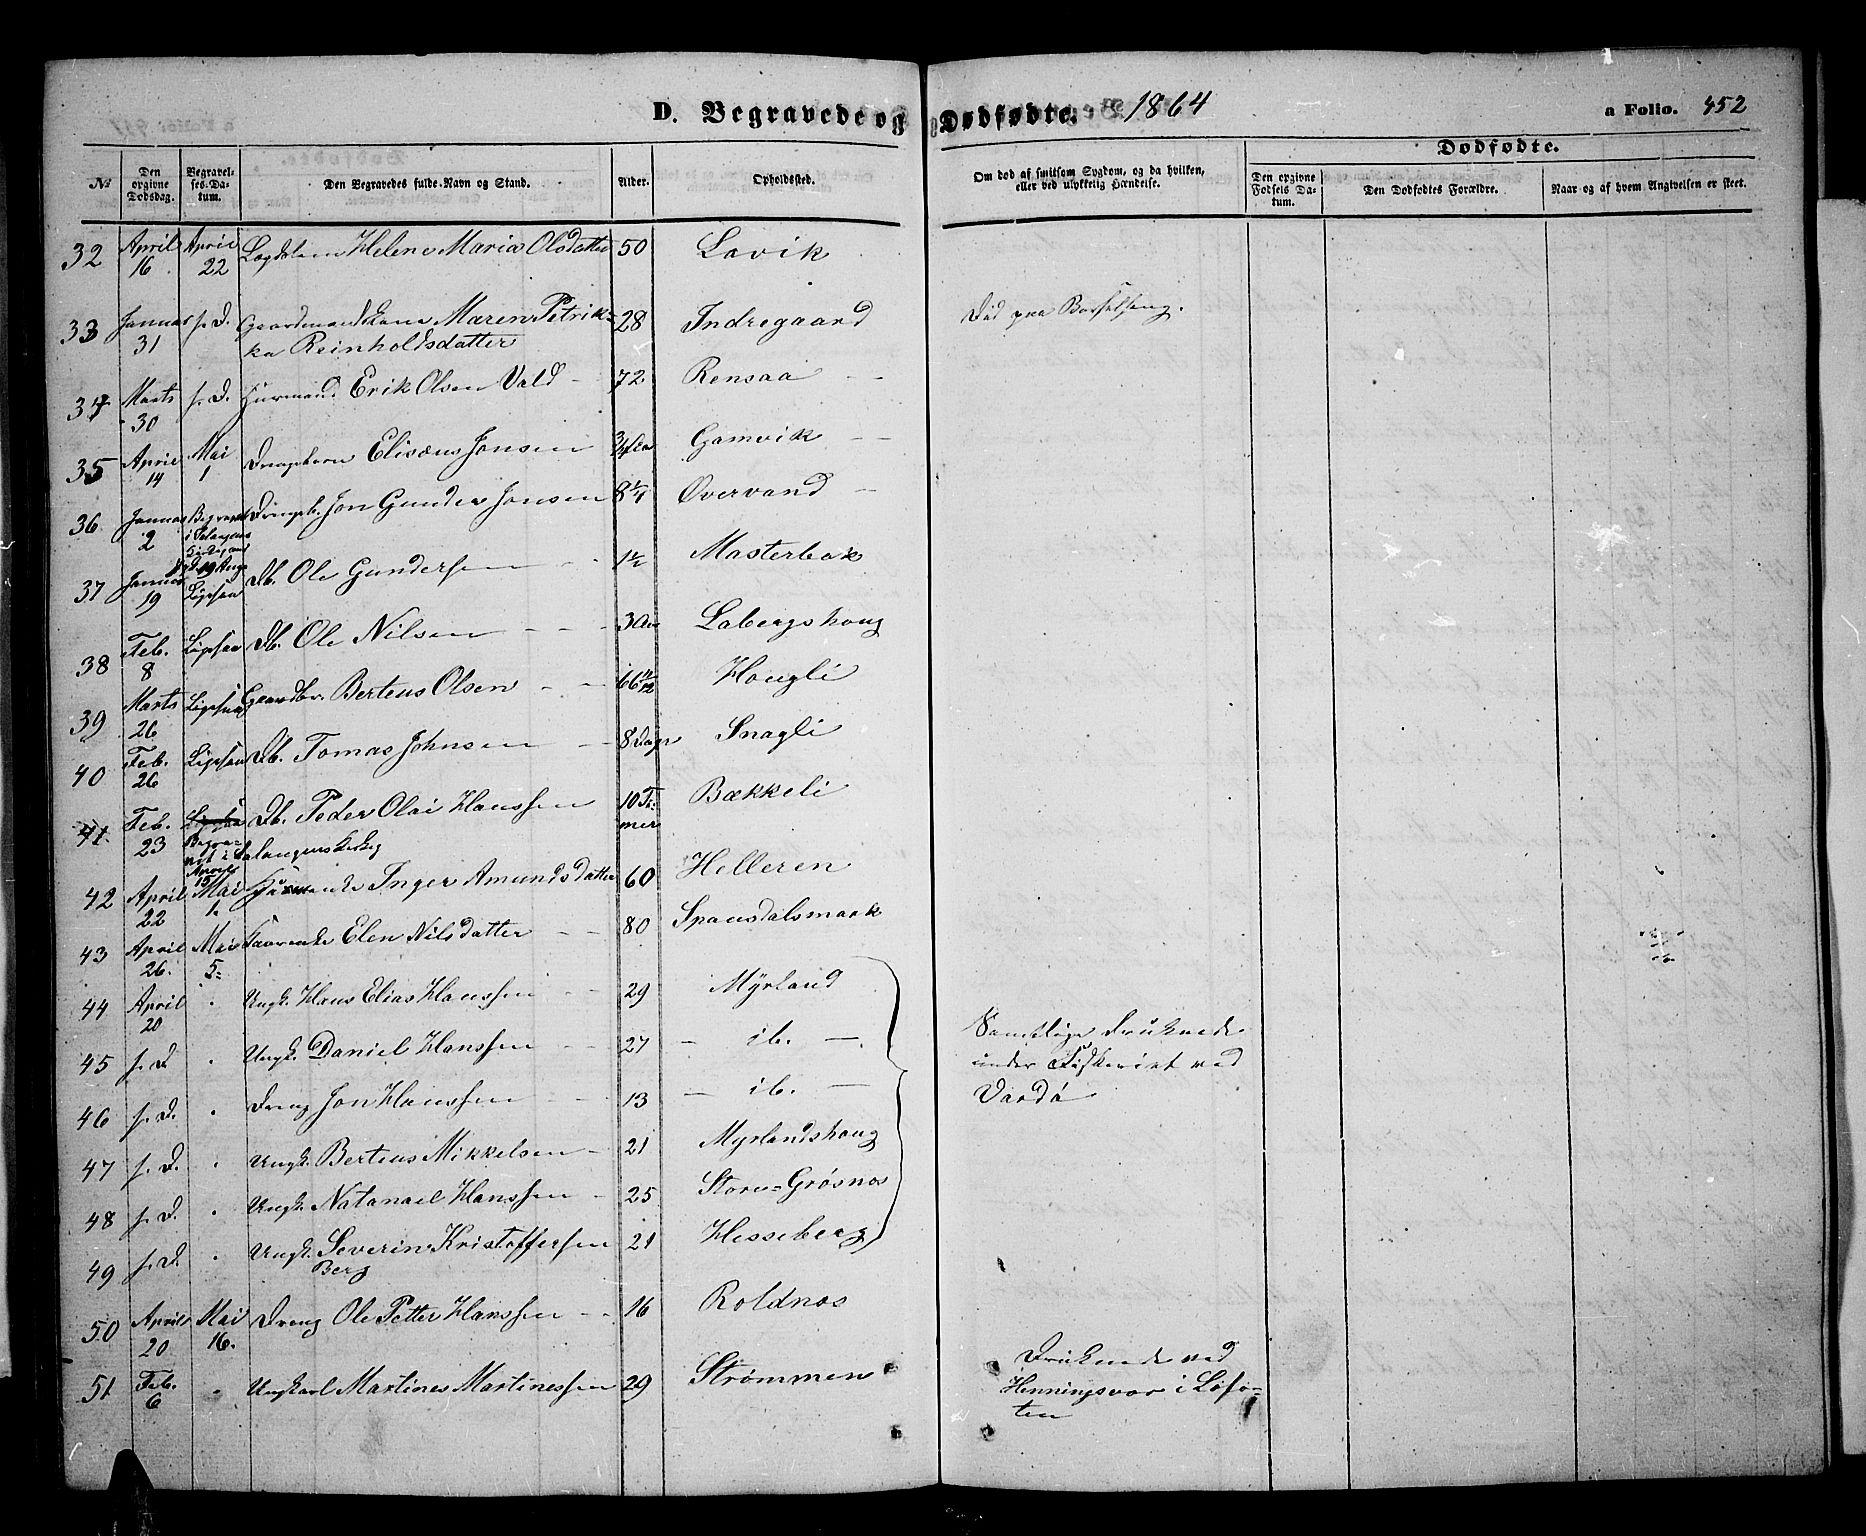 D. Begravede og Dødfødte. 1864 a Folio. 452
Dødfødte.
№ Den opgivne Dødsdag. Begravelses-Datum. Den Begravedes fulde Navn og Stand. Alder. Opholdssted. Om død af smitsom Sygdom, og da hvilken, eller ved ulykkelig Hændelse. Den opgivne Fødsels Datum. Den Dødfødtes Forældre. Naar og af hvem Angivelsen er skeet.
32 April 16 April 22 Helene Maria Olsdatter 50 Lavik
33 Januar 31 s. D. Gaardmandskone Maren Petrik-
ka Reinholdsdatter 28 Indregaard Død paa Barselseng.
34 Marts 30 s. D. Huusmand Erik Olsen Vald 72 Rensaa
35 April 14 Mai 1 Drengebarn Elisæus Jonsen 3/4 Aar Gamvik
36 Januar 2 Drengeb. Jon Gunder Jonsen 8 1/4 Overvand
37 Januar 19 Db. Ole Gundersen 1 1/2 Masterbak
38 Feb. 8 Db. Ole Nilsen 3 Aar Labergshoug
39 Marts 26 Gaardbr. Berteus Olsen 66 Hougli
40 Feb. 26 Db. Tomas Johnsen 8 Dage Snagli
41 Feb. 23 Begra-
vet i Salangens Kirkeg April 15 Db. Peder Olai Hanssen 10 Ti-
mer Bækkeli
42 April 22 Mai 1. Inger Amundsdatter 60 Helleren
43 April 26. Mai 5. Elen Nilsdatter 80 Spansdalsmark
44 April 20 " Ungk. Hans Elias Hanssen 29 Myrland
45 s. D. " Ungk. Daniel Hanssen 27 ib. Samtlige druknede
under Fiskeriet ved
Vardø
46 s. D. " Dreng Jon Hanssen 13 ib.
47 s. D. " Ungk. Berteus Mikkelsen 21 Myrlandshoug
48 s. D. " Ungk. Natanael Hanssen 25 Store-Grøsnes
49 s. D. " Ungk. Severin Kristoffersen
Berg 21 Hesseberg
50 April 20 Mai 16. Dreng Ole Petter Hanssen 16 Roldnes
51 Feb. 6 " Ungkarl Martines Martinessen 29 Strømmen Druknede ved
Henningsvær i Lofo-
ten